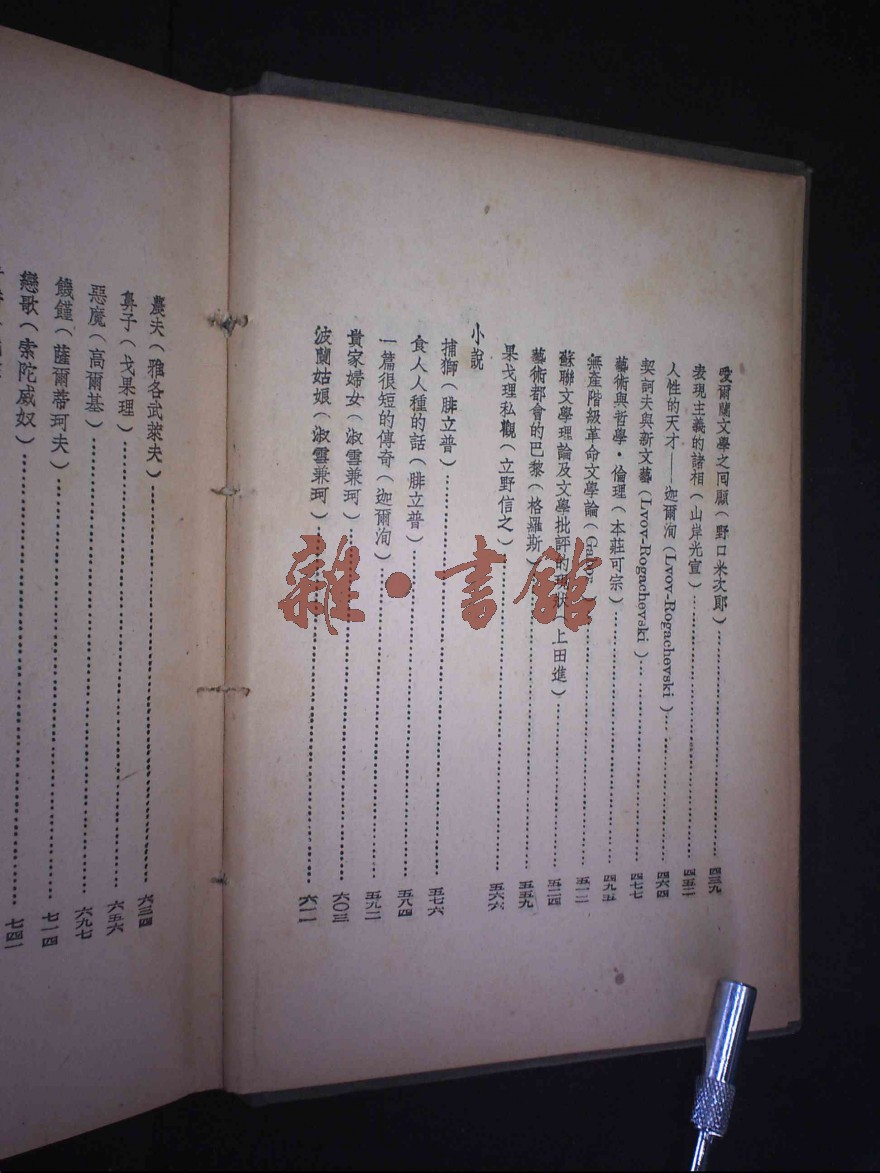 愛爾蘭文學之囘顧(野口米次郎)……四三九
表現主義的諸相(山岸光宣)……四五二
人性的天才——迦爾洵(Lvov-Rogachevski)……四六四
契訶夫與新文藝(Lvov-Rogachevski)……四七七
藝術與哲學・倫理(本莊可宗)……四九五
無產階級革命文學論……五一二
蘇聯文學理論及文學批評的現狀(上田進)……五二四
藝術都會的巴黎(格羅斯)……五五九
果戈理私觀(立野信之)……五六六
小說
捕獅(腓立普)……五七六
食人人種的話(腓立普)……五八四
一篇很短的傳奇(迦爾洵)……五九二
貴家婦女(淑雪兼珂)……六〇三
波蘭姑娘(淑雪兼珂)……六一一
農夫(雅各武萊夫)……六三四
鼻子(戈果理)……六五六
惡魔(高爾基)……六九七
饑饉(薩爾蒂珂夫)……七一四
戀歌(索陀威奴)……七四一
雜・書館